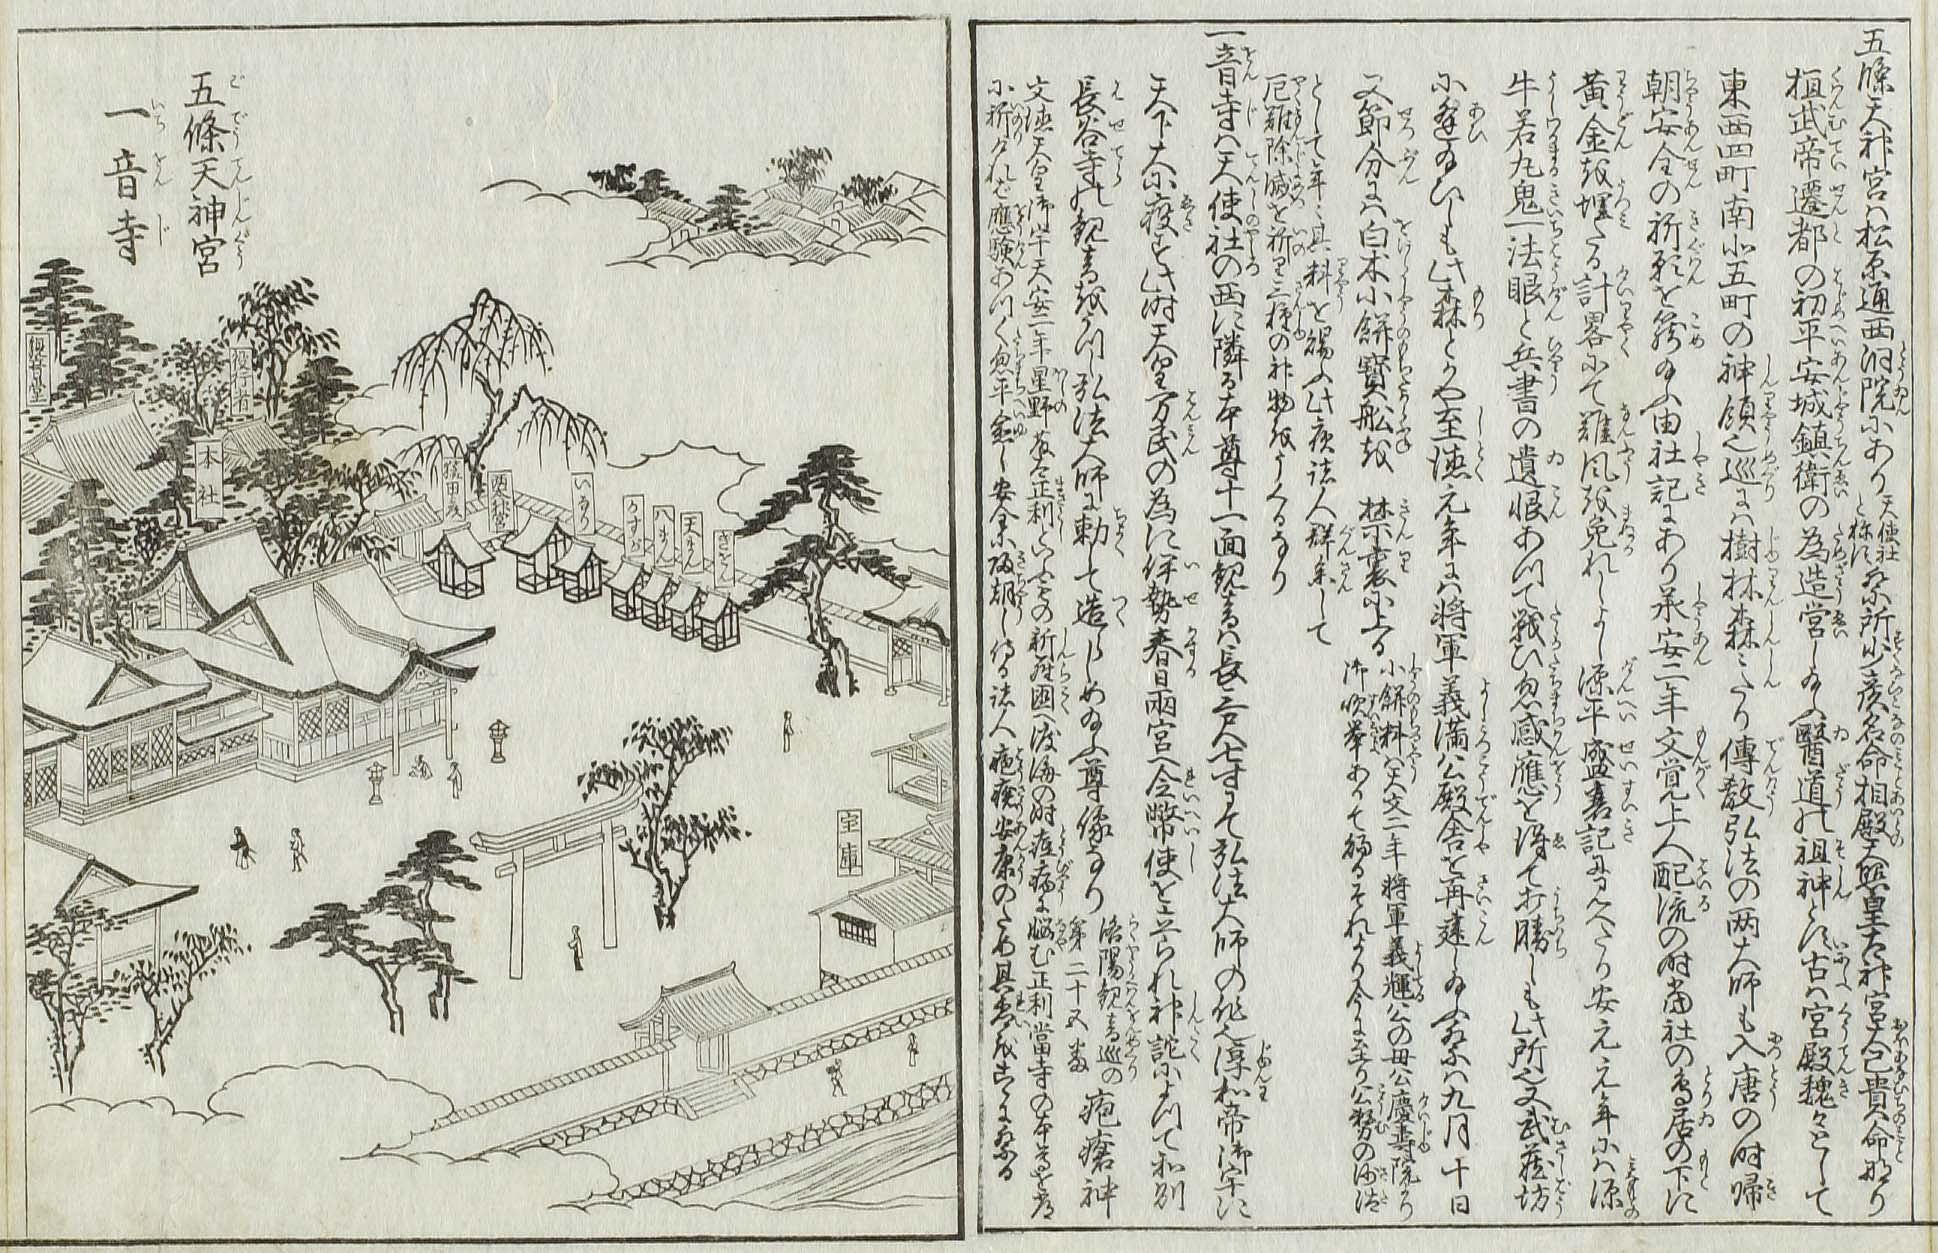 五條天神宮ハ松原通西洞院にあり
天使社
と称す
祭所少彦名命相殿天照皇太神宮大己貴命なり
桓武帝遷都の初平安城鎮衛の為造営し給ふ醫道の祖神とす古ハ宮殿魏々として
東西四町南北五町の神領也巡りハ樹林森々たり傳教弘法の両大師も入唐の時帰
朝安全の祈願を籠給ふ由社記にあり承安二年文覚上人配流の時當社の鳥居の下に
黄金を埋たる計畧にて難風を免れしよし源平盛衰記に見へたり安元元年にハ源
牛若丸鬼一法眼と兵書の遺恨あつて戦ひ忽感應を得て打勝しも此所也又武蔵坊
に逢給ひしも此森とかや至徳元年にハ将軍義満公殿舎を再建し給ふ祭ハ九月十日
又節分にハ白朮小餅寶舩を禁裏に上る
小餅料ハ天文二年将軍義輝公の母公慶壽院より
御吹挙あつて賜るそれより今に至り公務の御沙汰
として年々其料を賜ふ此夜諸人群参して
厄難除滅を祈り三種の神物をうくるなり
一音寺ハ天使社の西に隣る本尊十一面観音ハ長三尺七寸にて弘法大師の作也淳和帝御宇に
天下大に疫す此時天皇万民の為に伊勢春日両宮へ令幣使を立られ神託によつて和州
長谷寺の観音をうつし弘法大師に勅して造らしめ給ふ尊像なり
洛陽観音巡の
第二十五番
疱瘡神
文徳天皇御宇天安二年星野正利といふもの新羅國へ渡海の時痘瘡に悩む正利當寺の本尊を
に祈りけれは應験あつく忽平愈し安全に帰朝し侍る諸人疱瘡安康のため其
五條天神宮
一音寺
観音堂
役行者
本社
猿田彦
いなり
かすが
八まん
天まん
ぎをん
宝庫